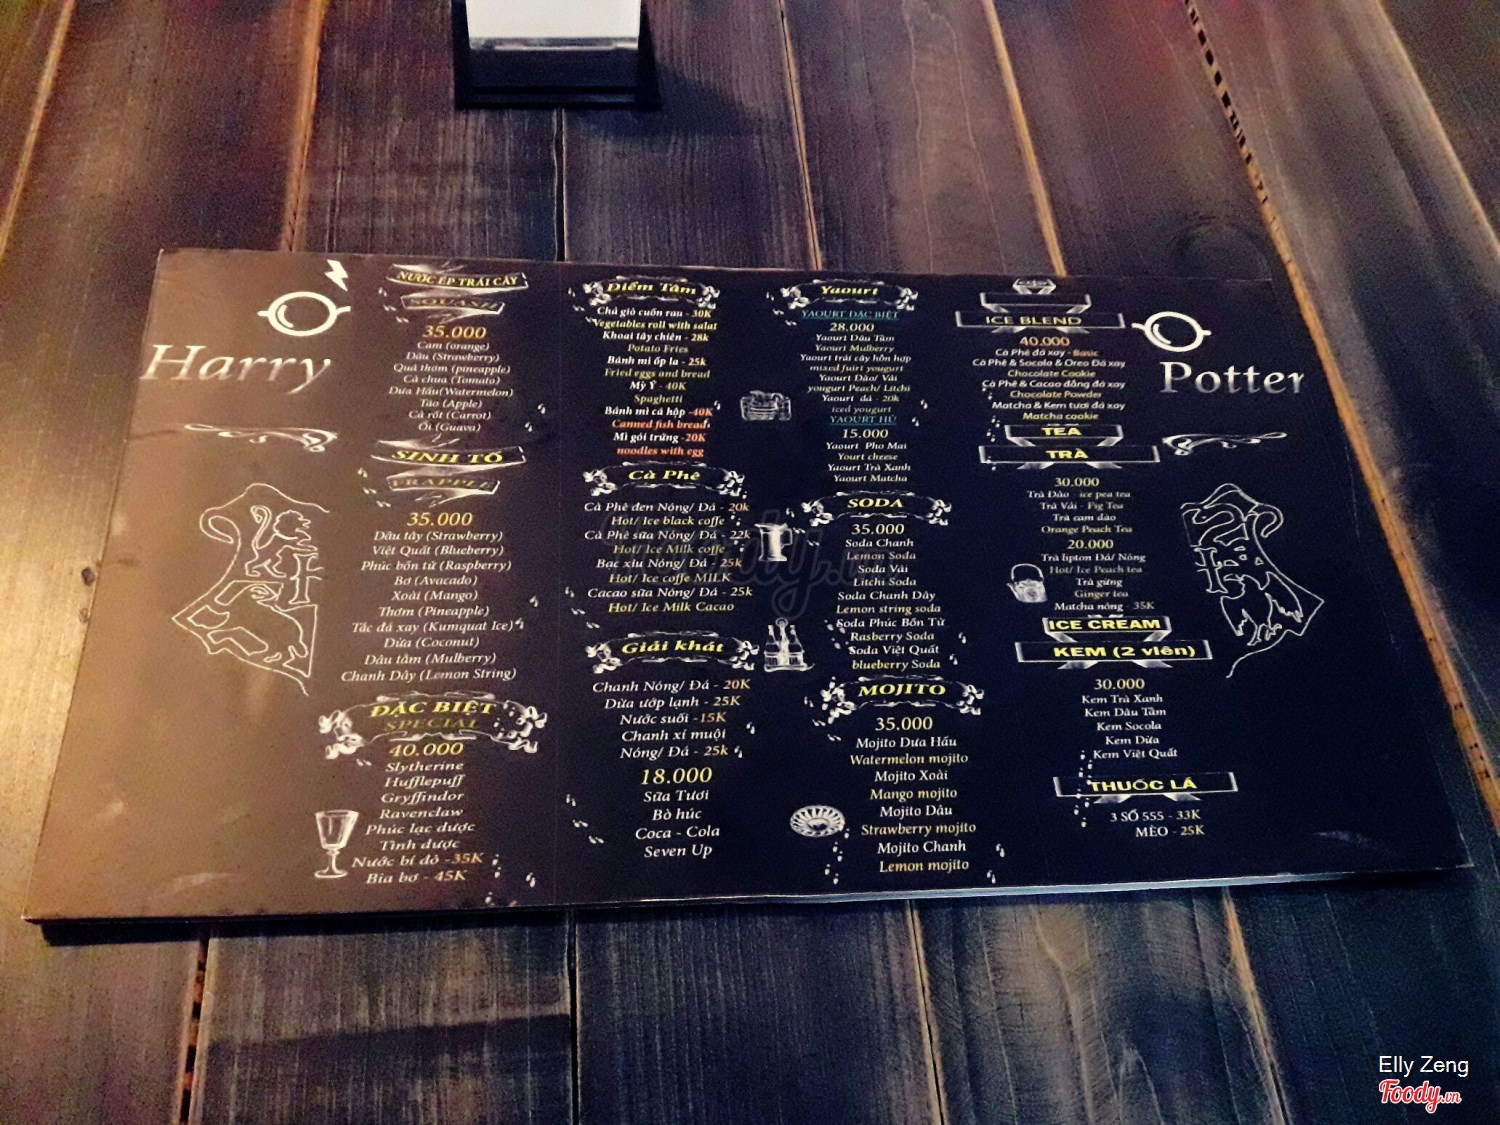 Harry
NƯỚC ÉP TRÁI CÂY
SQUASH
35.000
Cam (orange)
Dâu (Strawberry)
Quả thơm (pineapple)
Cà chua (Tomato)
Dưa Hấu(Watermelon)
Táo (Apple)
Cà rốt (Carrot)
Ổi (Guava)
SINH TỐ
FRAPPLE
35.000
Dâu tây (Strawberry)
Việt Quất (Blueberry)
Phúc bồn tử (Raspberry)
Bơ (Avacado)
Xoài (Mango)
Thơm (Pineapple)
Tắc đá xay (Kumquat Ice)
Dừa (Coconut)
Dâu tằm (Mulberry)
Chanh Dây (Lemon String)
ĐẶC BIỆT
SPECIAL
40.000
Slytherine
Hufflepuff
Gryffindor
Ravenclaw
Phúc lạc dược
Tình dược
Nước bí đỏ -35K
Bia bơ - 45K
Điểm Tâm
Chả giò cuốn rau - 30K
Vegetables roll with salat
Khoai tây chiên - 28k
Potato Fries
Bánh mì ốp la - 25k
Fried eggs and bread
Mỳ Ý - 40K
Spaghetti
Bánh mì cá hộp -40K
Canned fish bread
Mì gói trứng -20K
noodles with egg
Cà Phê
Cà Phê đen Nóng/ Đá - 20k
Hot/ Ice black coffe
Cà Phê sữa Nóng/ Đá - 22k
Hot/ Ice Milk coffe
Bạc xỉu Nóng/ Đá - 25k
Hot/ Ice coffe MILK
Cacao sữa Nóng/ Đá - 25k
Hot/ Ice Milk Cacao
Giải khát
Chanh Nóng/ Đá - 20K
Dừa ướp lạnh - 25K
Nước suối -15K
Chanh xí muội
Nóng/ Đá - 25k
18.000
Sữa Tươi
Bò húc
Coca - Cola
Seven Up
Yaourt
YAOURT ĐẶC BIỆT
28.000
Yaourt Dâu Tằm
Yaourt Mulberry
Yaourt trái cây hỗn hợp
mixed fuirt yougurt
Yaourt Đào/ Vải
yougurt Peach/ Litchi
Yaourt đá - 20k
iced yougurt
YAOURT HỦ
15.000
Yaourt Pho Mai
Yourt cheese
Yaourt Trà Xanh
Yaourt Matcha
SODA
35.000
Soda Chanh
Lemon Soda
Soda Vải
Litchi Soda
Soda Chanh Dây
Lemon string soda
Soda Phúc Bồn Tử
Rasberry Soda
Soda Việt Quất
blueberry Soda
MOJITO
35.000
Mojito Dưa Hấu
Watermelon mojito
Mojito Xoài
Mango mojito
Mojito Dâu
Strawberry mojito
Mojito Chanh
Lemon mojito
ICE BLEND
40.000
Cà Phê đá xay - Basic
Cà Phê & Socola & Oreo Đá xay
Chocolate Cookie
Cà Phê & Cacao đắng đá xay
Chocolate Powder
Matcha & Kem tươi đá xay
Matcha cookie
TEA
TRÀ
30.000
Trà Đào - ice pea tea
Trà Vải - Fig Tea
Trà cam đào
Orange Peach Tea
20.000
Trà lipton Đá/ Nóng
Hot/ Ice Peach tea
Trà gừng
Ginger tea
Matcha nóng - 35K
ICE CREAM
KEM (2 viên)
30.000
Kem Trà Xanh
Kem Dâu Tằm
Kem Socola
Kem Dừa
Kem Việt Quất
THUỐC LÁ
3 SỐ 555 - 33K
MÈO - 25K
Potter
Elly Zeng
Foody.vn